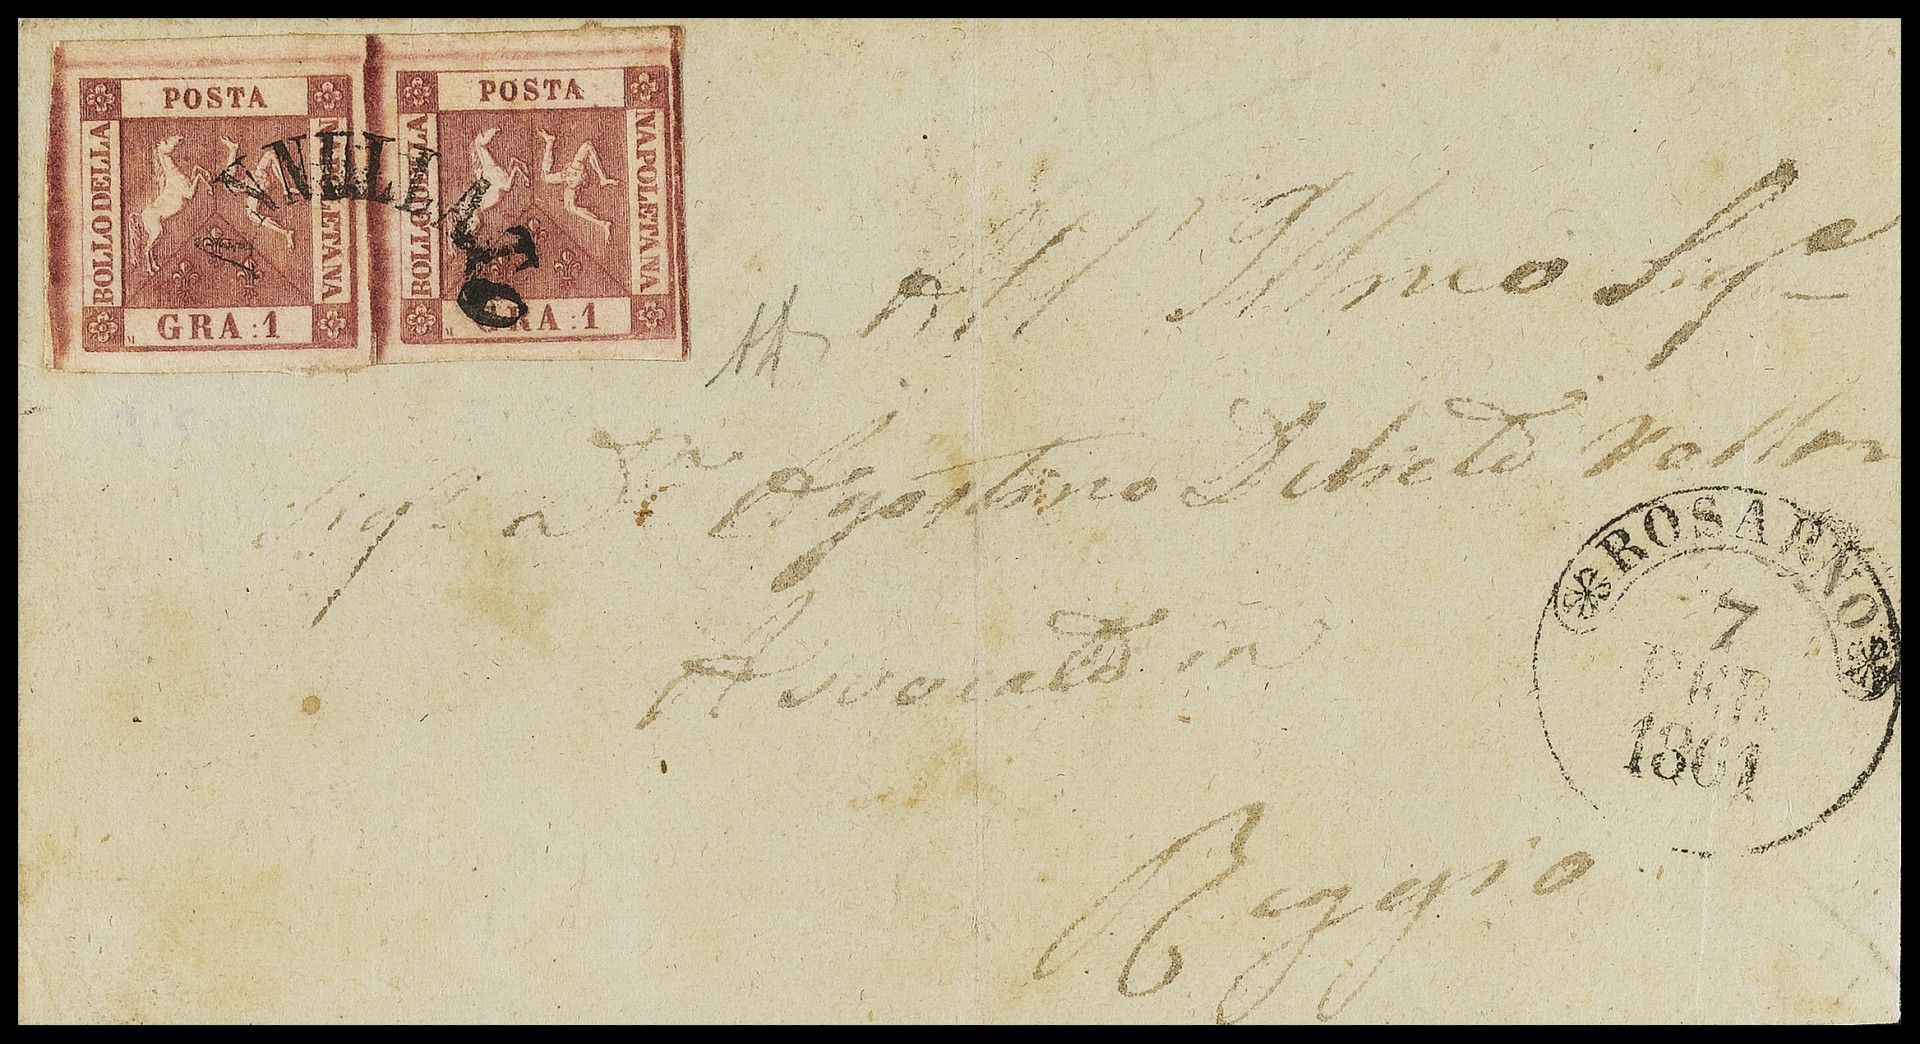 POSTA
BOLLO DELLA
NAPOLETANA
GRA:1
M
POSTA
BOLLO DELLA
NAPOLETANA
GRA:1
M
ANNULLATO
All' Illmo Sigr
Sigr D.n Agostino
Avvocato in
Reggio
ROSARNO
7
FEB
1861